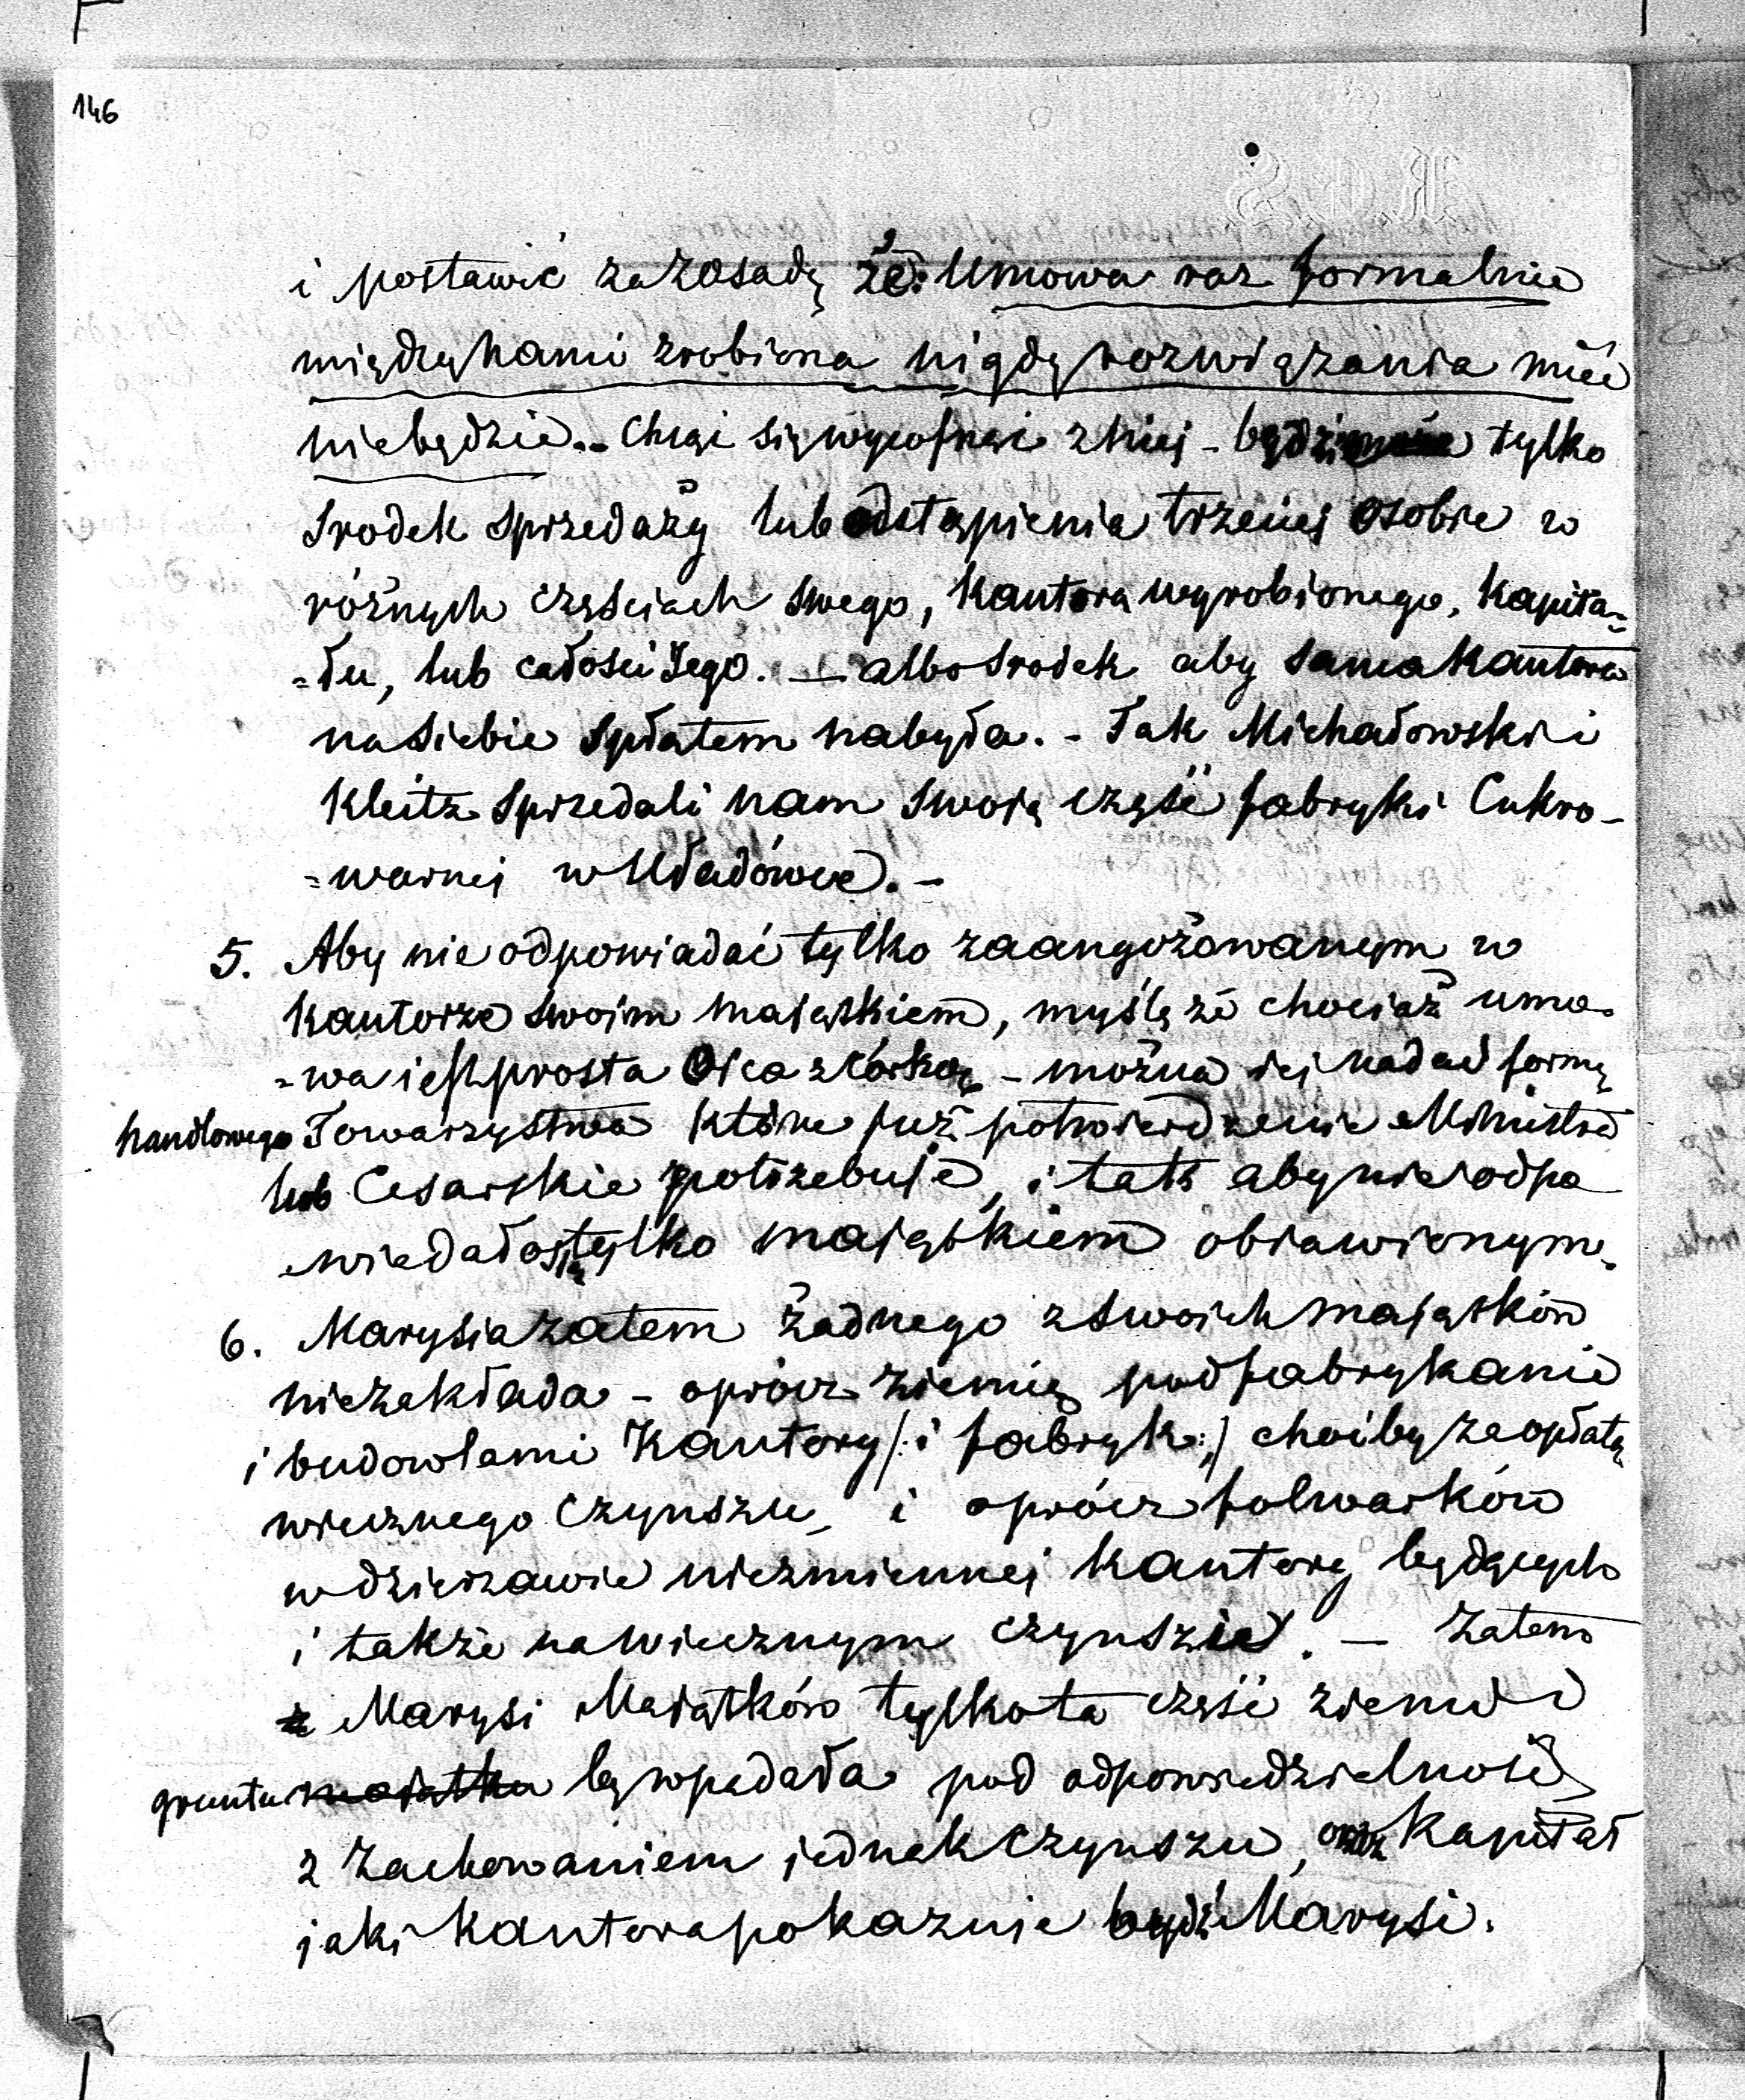 146
i postawić za zasadę że: Umowa raz formalnie
między nami zrobiona nigdy rozwiązania mieć
niebędzie.. Chcąc się wycofnąć z niej - będzie tylko
środek sprzedaży lub odstąpienia trzeciej osobie w
różnych częściach swego, Kantorą wyrobionego, Kapita=
=łu, lub całości Jego. — albo środek aby sama Kantora
na siebie spłatem nabyła. - Tak Michałowski i
Kleitz sprzedali nam swoją część fabryki Cukro-
=warnej w Uładówce. -
5. Aby nie odpowiadać tylko zaangożowanym w
kantorze swoim majątkiem, myślę że chociaż umo-
=wa jest prosta Ojca z Córką - można jej nadać formę
handlowego Towarzystwa które już potwierdzenie Ministra
lub Cesarskie potrzebuje, i tak aby nie odpo
wiadało się tylko majątkiem objawionym.
6. Marysia zatem żadnego z swoich majątków
niezakłada - oprócz ziemię pod fabrykanie
i budowlami Kantory /: i fabryk :/ choćby za opłatą
wiecznego Czynszu, i oprócz folwarków
w dzierżawie niezmiennej Kantory będących
i także na wiecznym czynszie. — Zatem
z Marysi Majątków tylko ta część ziemi i
gruntu majątku by wpadała pod odpowiedzialność
z zachowaniem jednak Czynszu, oraz Kapitał
jaki Kantora pokaznie bydź Marysi.